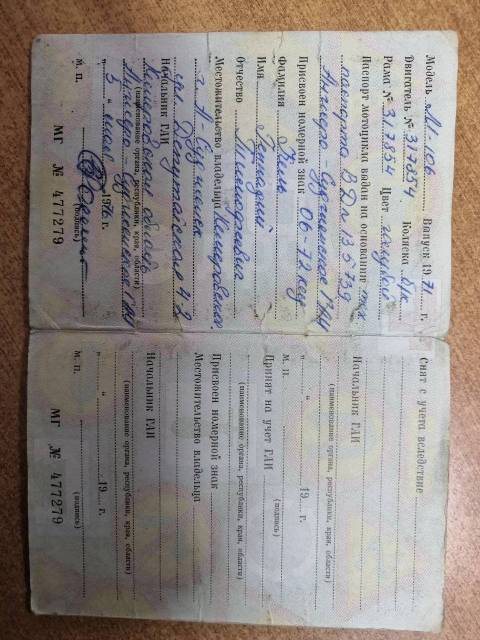 Модель М-106 Выпуск 1971 г.
Двигатель № 317854 Коляска б/к
Рама № 317854 Цвет голубой
Паспорт мотоцикла выдан на основании тех
паспорта ВДл 135739
Анжеро-Судженское ГАИ
Присвоен номерной знак 06-72
Фамилия
Имя Геннадий
Отчество
Местожительство владельца Кемеровское
г. А-Судженск
Депутатская 4-2
Начальник ГАИ
Кемеровской область
(наименование органа, республики, края, области)
Анжеро-Судженское ГАИ
„5“ 1976 г.
м. п. (подпись)
МГ № 477279
Снят с учета вследствие
Начальник ГАИ
(наименование органа, республики, края, области)
„ “ 19 г.
м. п. (подпись)
Принят на учет ГАИ
(наименование органа, республики, края, области)
Присвоен номерной знак
Местожительство владельца
Начальник ГАИ
(наименование органа, республики, края, области)
„ “ 19 г.
м. п. (подпись)
МГ № 477279